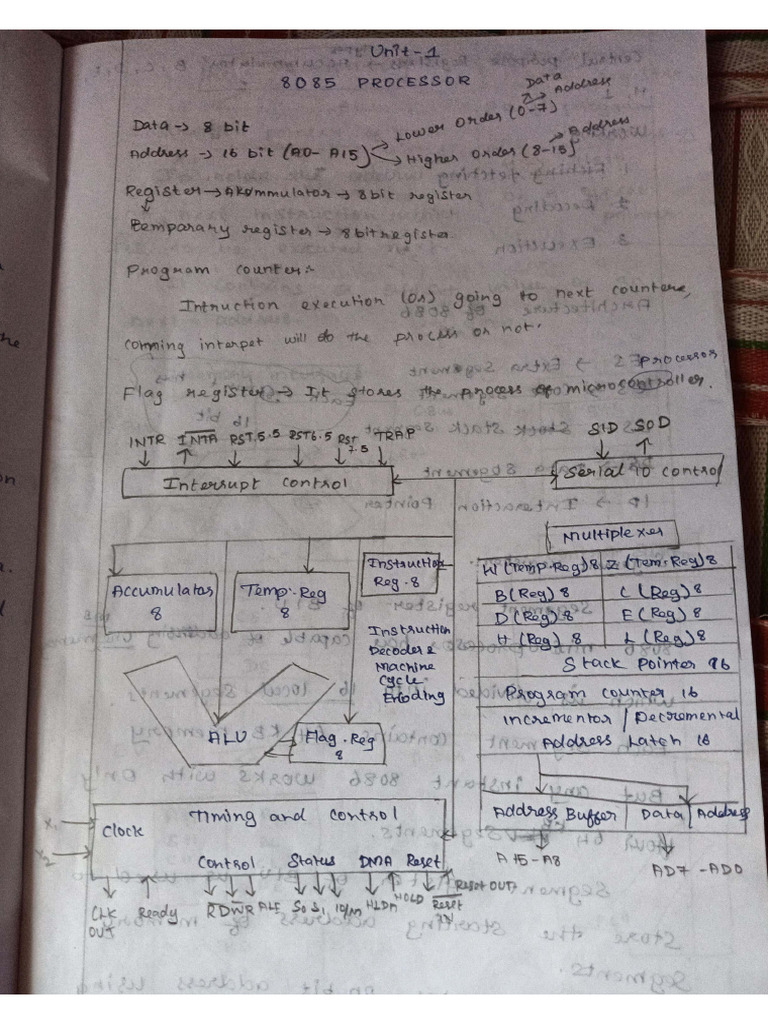 Unit-1
8085 PROCESSOR
Data
Address
Data → 8 bit
Lower Order (0-7)
Address → 16 bit (A0- A15)
Higher Order (8-15)
Address
Register → Akummulator → 8 bit register
temparary register → 8 bit register
Program counter:-
Intruction execution (or) going to next countere,
comming interpet will do the process or not.
processor
Flag register → It stores the process of microcontroller.
INTR INTA RST.5.5 RST6.5 RST 7.5 TRAP
SID SOD
Interrupt control
Serial IO control
Multiplexer
Accumulator 8
Temp. Reg 8
Instruction Reg. 8
W (Temp. Reg) 8 Z (Tem. Reg) 8
B (Reg) 8 C (Reg) 8
D (Reg) 8 E (Reg) 8
H (Reg) 8 L (Reg) 8
Stack Pointer 16
Program counter 16
Incrementor / Decremental
Address Latch 16
Instruction
Decoder &
Machine
Cycle
Encoding
ALU
Flag. Reg 8
Address Buffer Data / Address
A15-A8
AD7 -AD0
Timing and control
X1
Clock
X2
Control Status DMA Reset
CLK OUT
Ready
RD WR ALE
S0 S1 IO/M
HLDA HOLD
Reset IN
Reset OUT